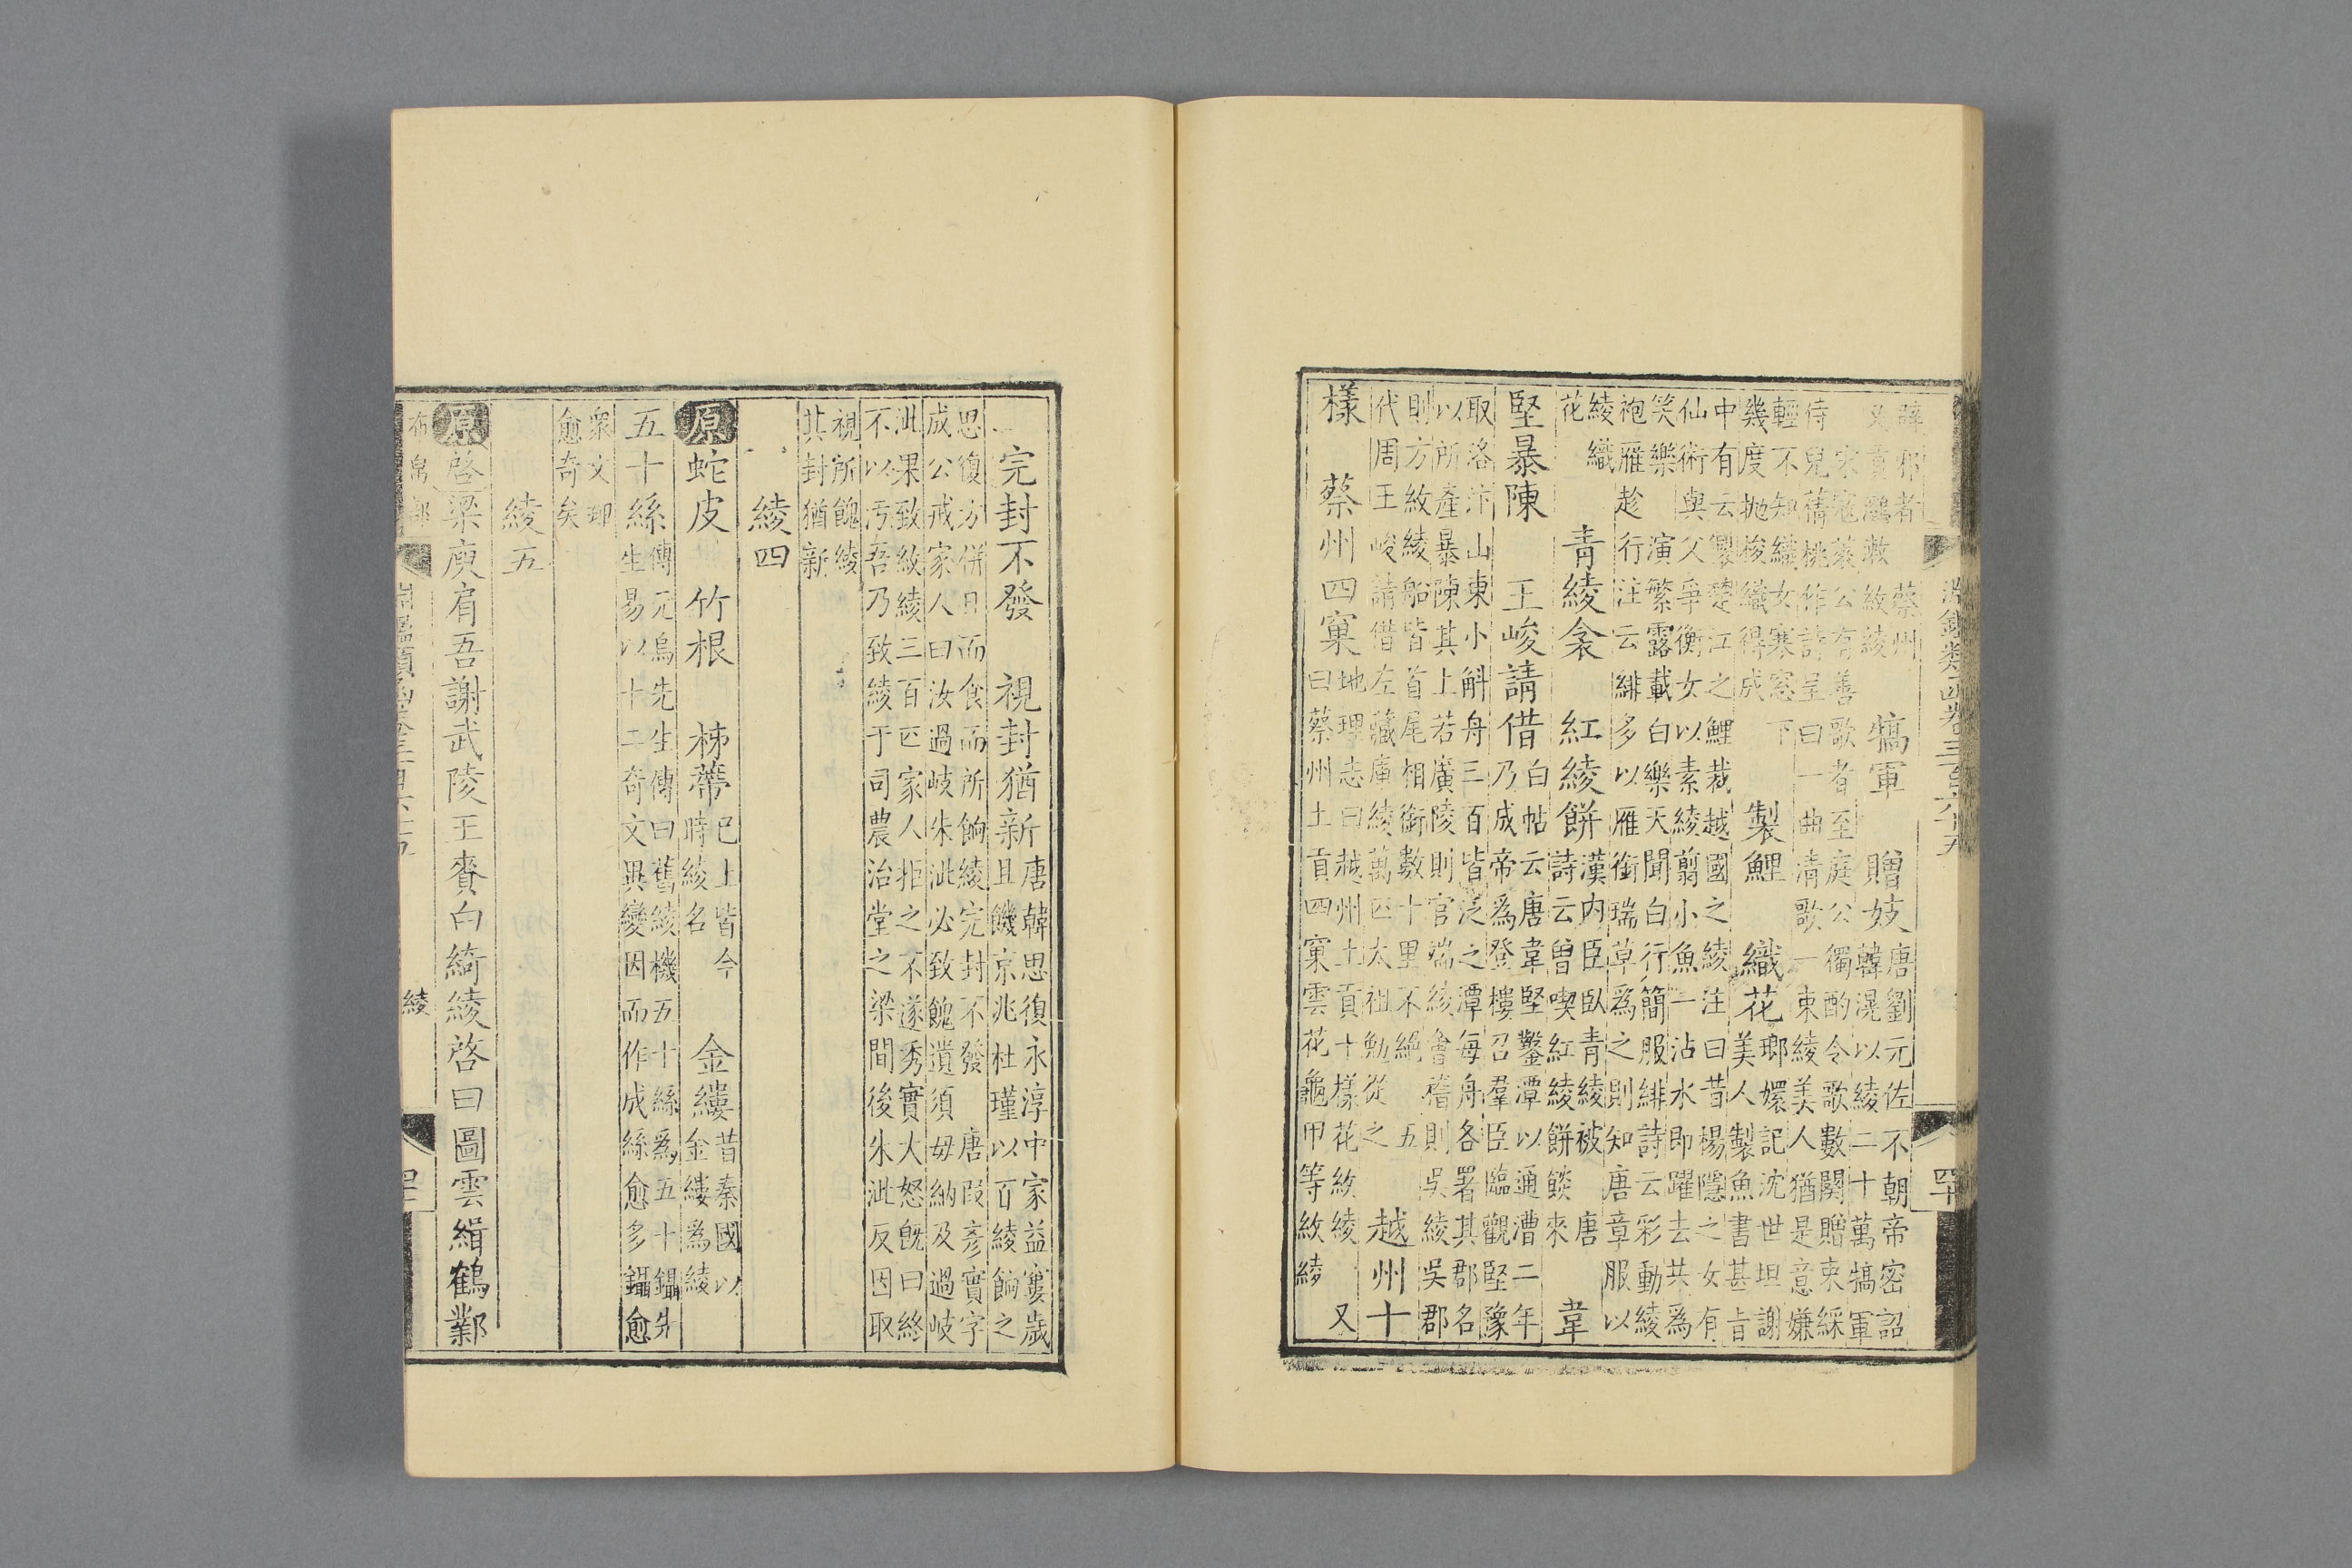 淵鑑類函卷三百六十五
四十
犒軍　贈妓
唐劉元佐不朝帝密詔
韓滉以綾二十萬犒軍
蔡州
敕紋綾
宋寇萊公有善歌者至庭公獨酌令歌數闋贈束綵
侍兒蒨桃作詩呈曰一曲清歌一束綾美人猶是意嫌
輕不知織女寒窓下
幾度拋梭織得成
製鯉　織花
瑯嬛記沈世坦謝
美人製魚書甚旨
中有云㒺楚江之鯉裁越國之綾注曰昔楊隱之女有
仙術與父爭衡女以素綾翦小魚一沾水即躍去共爲
笑樂
演繁露載白樂天聞白行簡服緋詩云彩動綾
袍雁趁行注云緋多以雁銜瑞草爲之則知唐章服以
綾織
花
青綾衾　紅綾餅
漢內臣臥青綾被
詩云曾喫紅綾餅餤來
唐
韋
堅暴陳　王峻請借
白帖云唐韋堅鑿潭以通漕二年
乃成帝爲登樓召羣臣臨觀堅豫
取洛汴山東小斛舟三百皆泛之潭每舟各署其郡名
以所產暴陳其上若廣陵則官端綾會稽則吳綾吳郡
則方紋綾船皆首尾相銜數十里不絕
五
代周王峻請借左藏庫綾萬匹太祖勉從之
越州十
樣　蔡州四窠
地理志曰越州土貢十樣花紋綾
又
曰蔡州土貢四窠雲花龜甲等紋綾
完封不發　視封猶新
唐韓思復永淳中家益窶歲
且饑京兆杜瑾以百綾餉之
思復方併日而食而所餉綾完封不發
唐段彥實字
成公戒家人曰汝過岐朱泚必致餽遺須毋納及過岐
泚果致紋綾三百匹家人拒之不遂秀實大怒旣曰終
不以污吾乃致綾于司農治堂之梁間後朱泚反因取
視所餽綾
其封猶新
綾四
原蛇皮　竹根　柹蔕
巳上皆今
時綾名
金縷
昔秦國以
金縷爲綾
五十絲
傅元烏先生傳曰舊綾機五十絲爲五十鑷先
生易以十二奇文異變因而作成絲愈多鑷愈
衆文却
愈奇矣
綾五
原啓梁庾肩吾謝武陵王賚白綺綾啓曰圖雲緝鶴鄴
布帛部
綾